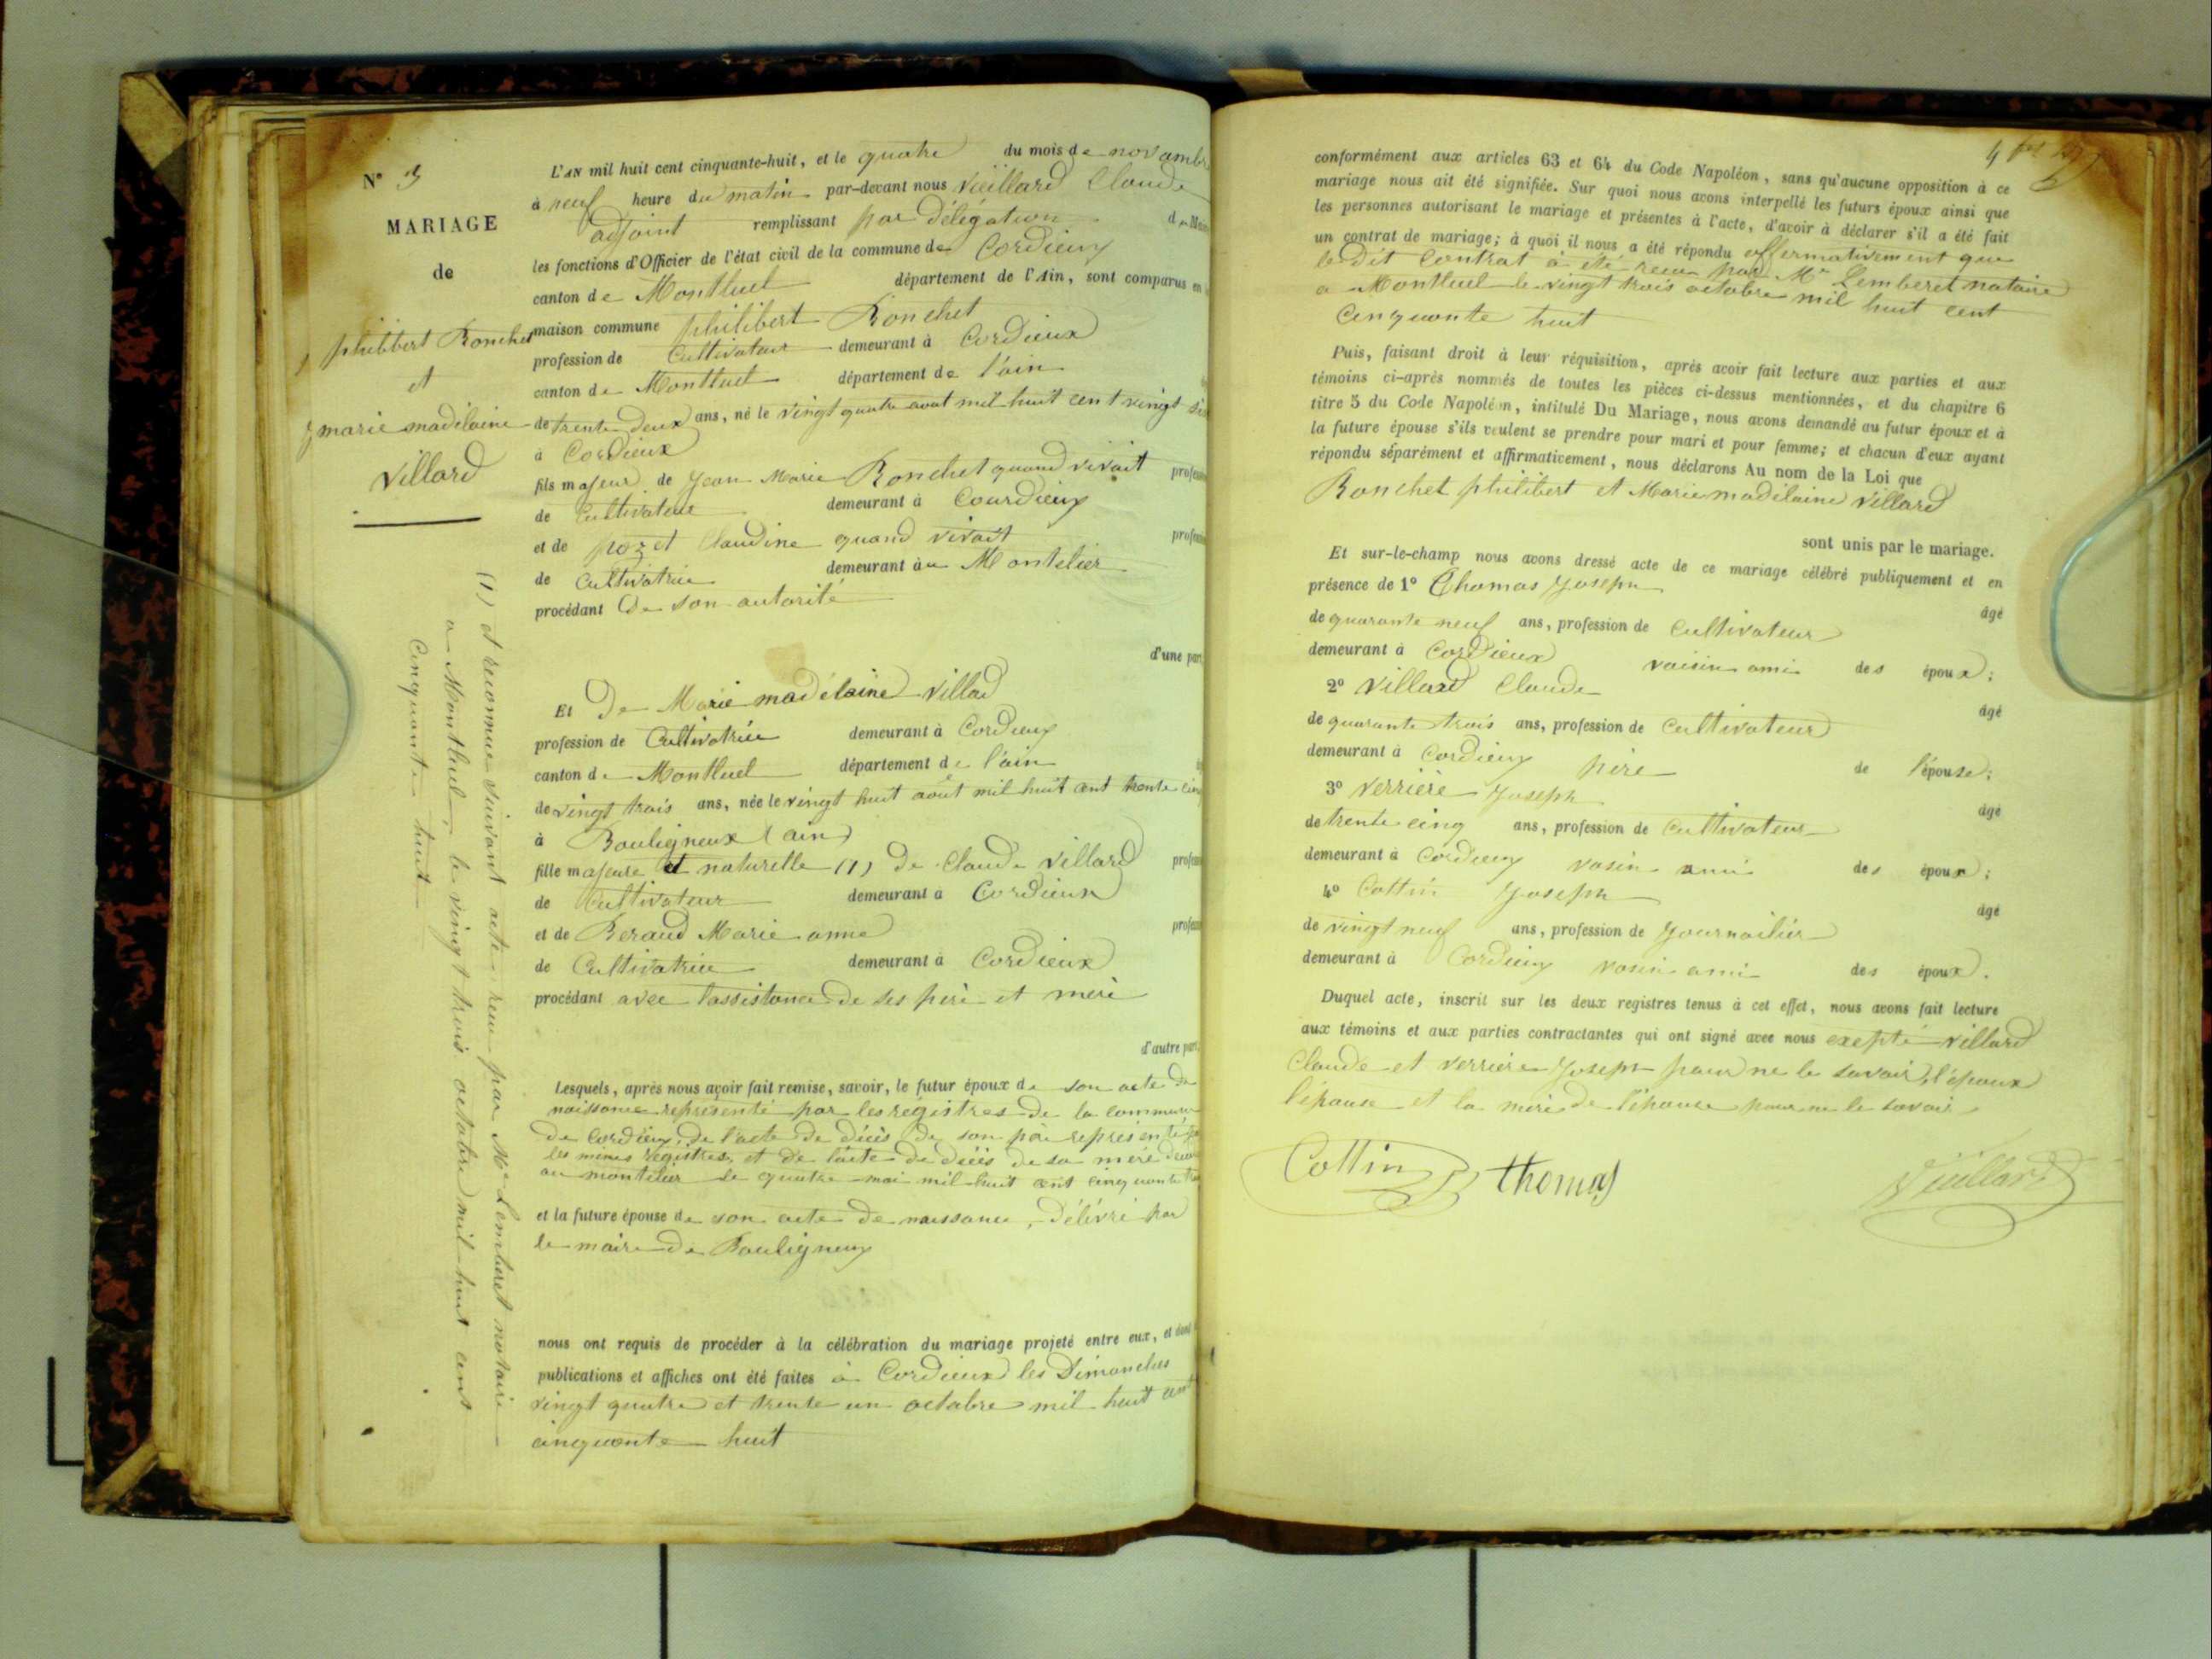 N° 3
MARIAGE
de
philibert Ronchet
et
marie madelaine
villard
(1) et reconnue suivant acte reçu par Me Lemberet notaire
a Montluel, le vingt trois octobre mil huit cent
cinquante huit
L'AN mil huit cent cinquante-huit, et le quatre du mois de novambre
à neuf heure du matin par-devant nous Vieillard Claude
adjoint remplissant par délégation du Maire
les fonctions d'Officier de l'état civil de la commune de Cordieux
canton de Montluel département de l'Ain, sont comparus en
maison commune philibert Ronchet
profession de Cultivateur demeurant à Cordieux
canton de Montluel département de l'ain
de trente deux ans, né le vingt quatre aout mil huit cent vingt six
à Cordieux
fils majeur de Jean Marie Ronchet quand vivait profession
de Cultivateur demeurant à Courdieux
et de pozet Claudine quand vivait profession
de Cultivatrice demeurant au Montelier
procédant De son autorité
d'une part
Et De Marie madelaine villad
profession de Cultivatrice demeurant à Cordieux
canton de Montluel département de l'ain
de vingt trois ans, née le vingt huit août mil huit cent trente cinq
à Bouligneux (ain)
fille majeure et naturelle (1) de Claude villard profession
de Cultivateur demeurant a Cordieux
et de Beraud Marie anne profession
de Cultivatrice demeurant à Cordieux
procédant avec l'assistance de ses père et mere
d'autre part.
Lesquels, après nous avoir fait remise, savoir, le futur époux de son acte de
naissance représenté par les régistres de la commune
de Cordieux, de l'acte de décès de son père représenté par
les mêmes registres, et de l'acte de décès de sa mère
au montelier le quatre mai mil huit cent cinquante
et la future épouse de son acte de naissance, délivré par
le maire de Bouligneux
nous ont requis de procéder à la célébration du mariage projeté entre eux, et dont
publications et affiches ont été faites à Cordieux les Dimanches
vingt quatre et trente un octobre mil huit cent
cinquante huit
conformément aux articles 63 et 64 du Code Napoléon, sans qu'aucune opposition à ce
mariage nous ait été signifiée. Sur quoi nous avons interpellé les futurs époux ainsi que
les personnes autorisant le mariage et présentes à l'acte, d'avoir à déclarer s'il a été fait
un contrat de mariage; à quoi il nous a été répondu affermativement que
le dit Contrat à été recu par Me Lemberet notaire
a Montluel le vingt trois octobre mil huit cent
Cinquante huit
Puis, faisant droit à leur réquisition, après avoir fait lecture aux parties et aux
témoins ci-après nommés de toutes les pièces ci-dessus mentionnées, et du chapitre 6
titre 5 du Code Napoléon, intitulé Du Mariage, nous avons demandé au futur époux et à
la future épouse s'ils veulent se prendre pour mari et pour femme; et chacun d'eux ayant
répondu séparément et affirmativement, nous déclarons Au nom de la Loi que
Ronchet philibert et Marie madelaine villard
sont unis par le mariage.
Et sur-le-champ nous avons dressé acte de ce mariage célébré publiquement et en
présence de 1° Thomas Joseph
âgé
de quarante neuf ans, profession de Cultivateur
demeurant à Cordieux voisin ami des époux;
2° Villard Claude
âgé
de quarante trois ans, profession de Cultivateur
demeurant à Cordieux père de l'épouse;
3° Verrière Joseph
âgé
de trente cinq ans, profession de Cultivateur
demeurant à Cordieux vosin ami des époux;
4° Cottin Joseph
âgé
de vingt neuf ans, profession de Journailier
demeurant à Cordieux vosin ami des époux.
Duquel acte, inscrit sur les deux registres tenus à cet effet, nous avons fait lecture
aux témoins et aux parties contractantes qui ont signé avec nous exepté villard
Claude et verriere Joseph pour ne le savoir, l'époux
l'épouse et la mère de l'épouse pour ne le savoir
Cottin thomas Vieillard